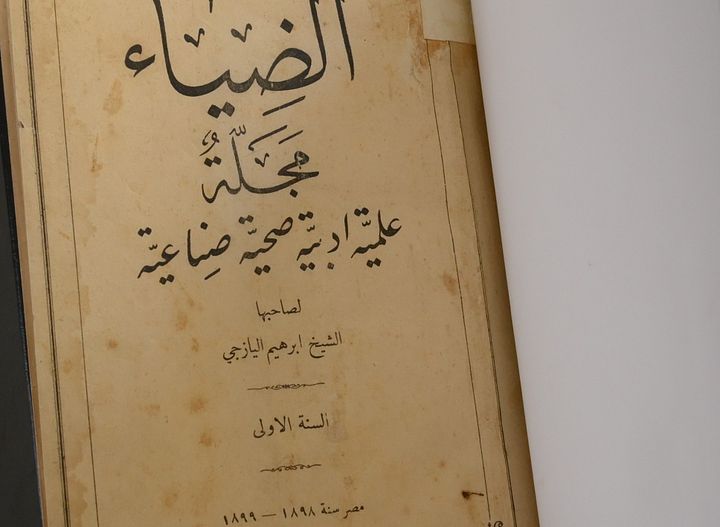 الضِياء
مَجَلَّةٌ
علميَّة ادبيَّة صحيَّة صِناعيَّة
لصاحبها
الشيخ ابرهيم اليازجي
السنة الاولى
مصر سنة ١٨٩٨ — ١٨٩٩